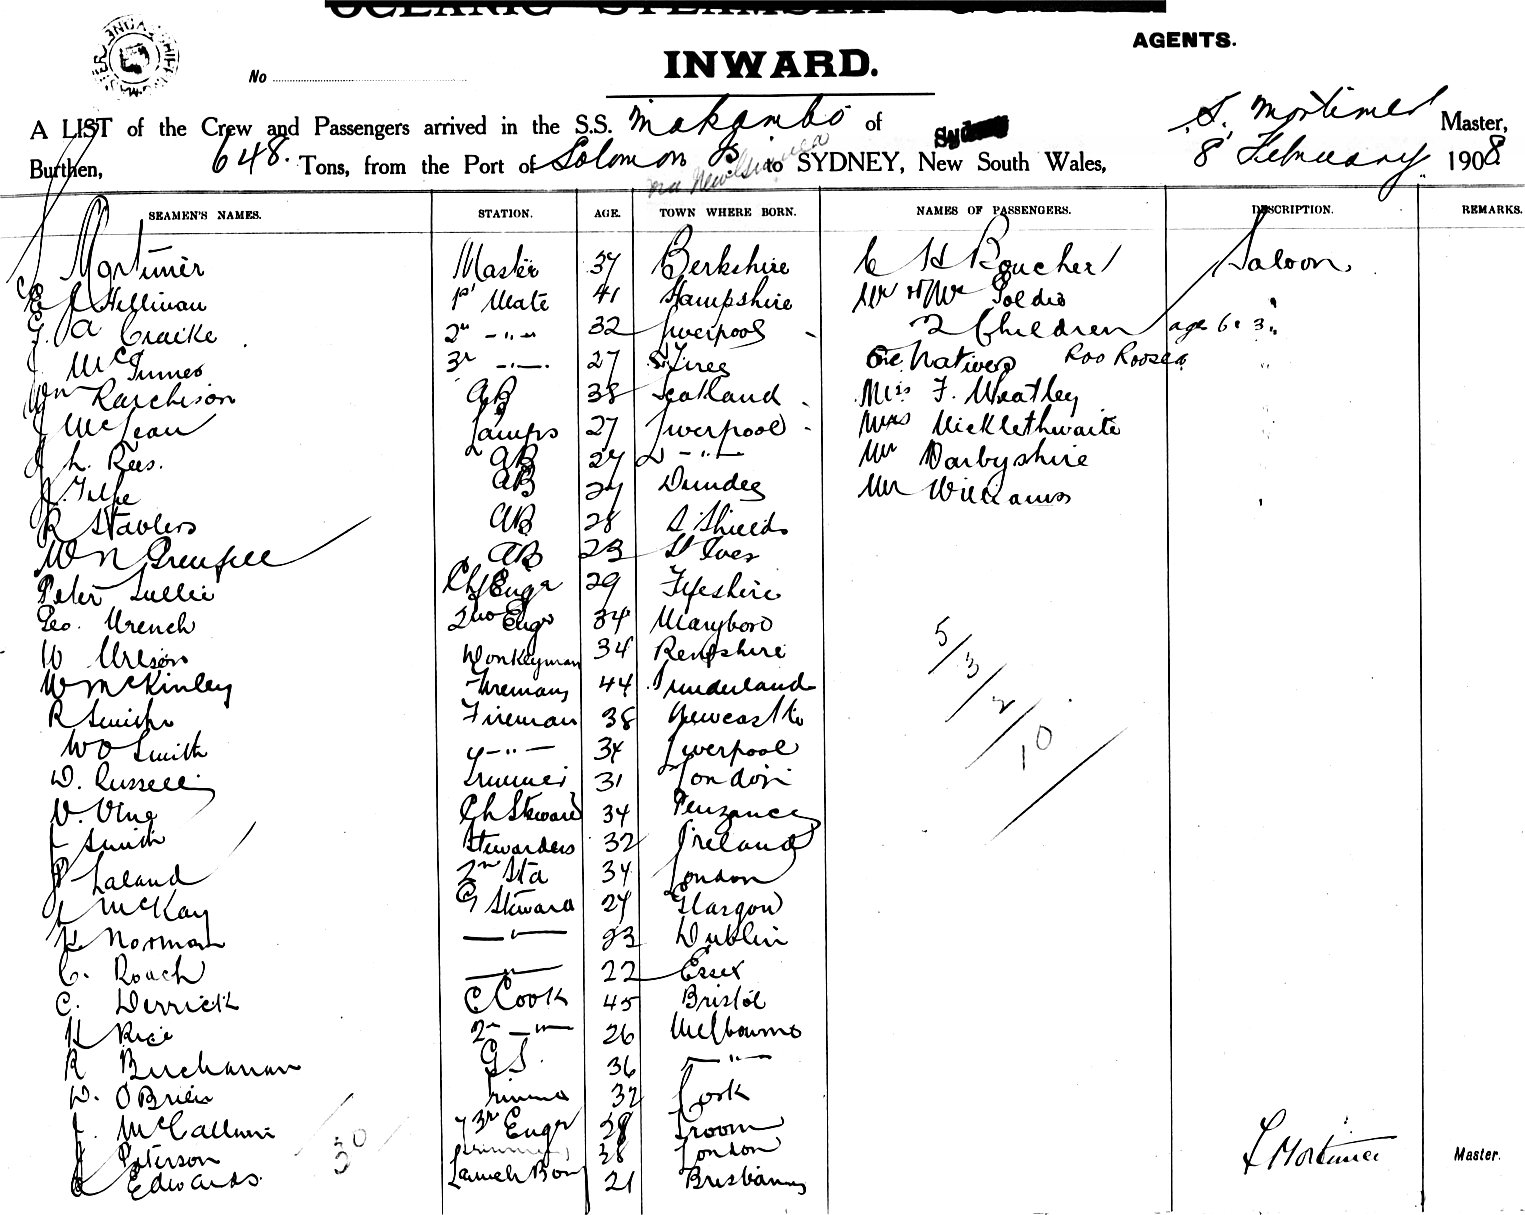 OCEANIC STEAMSHIP COMPANY
AGENTS.
INWARD.
No
A LIST of the Crew and Passengers arrived in the S.S. Makambo of Sydney S. Mortimer Master,
Burthen, 648. Tons, from the Port of Solomon Is via New Guinea to SYDNEY, New South Wales, 8 February 1908
SEAMEN'S NAMES. STATION. AGE. TOWN WHERE BORN. NAMES OF PASSENGERS. DESCRIPTION. REMARKS.
Mortimer Master 37 Berkshire C H Boucher Saloon
E J Hillman 1st Mate 41 Hampshire Mr & Mrs "
A Craike 2nd -"- 32 Liverpool 2 Children age 6 & 3 "
McInnes 3r -"- 27 Natives "
Wm AB 38 Scotland Miss F. Wheatley "
J McLean Lamps 27 Liverpool Miss Micklethwaite "
J L. Rees. AB 27 -"- Mr Darbyshire
J AB 27 Dundee Mr Williams "
R AB 28 S Shields
W N Grenfell AB 23 St Ives
Peter Ch Engr 29 Fifeshire
Geo. Wrench 2nd Engr 34 Maryboro
W Wilson Donkeyman 34 Renfshire
W McKinley Fireman 44 Sunderland
R Smith Fireman 38 Newcastle
W O Smith -"- 34 Liverpool
D. Russell Trimmer 31 London
V. Vine Ch Steward 34 Penzance
J Smith Stewardess 32 Ireland
Laland 2nd Std 34 London
McKay G Steward 24 Glasgow
H Norman -"- 23 Dublin
C. Roach -"- 22 Essex
C. Derrick C Cook 45 Bristol
H Rice 2n -"- 26 Melbourne
R Buchanan G.S. 36 -"-
D. O'Brien Trimmer 32 Cork
J. McCallum 3r Engr 28 Troon
J Paterson Trimmer 28 London
Edwards Launch Boy 21 Brisbane
5/3/2/10
30
S Mortimer Master.